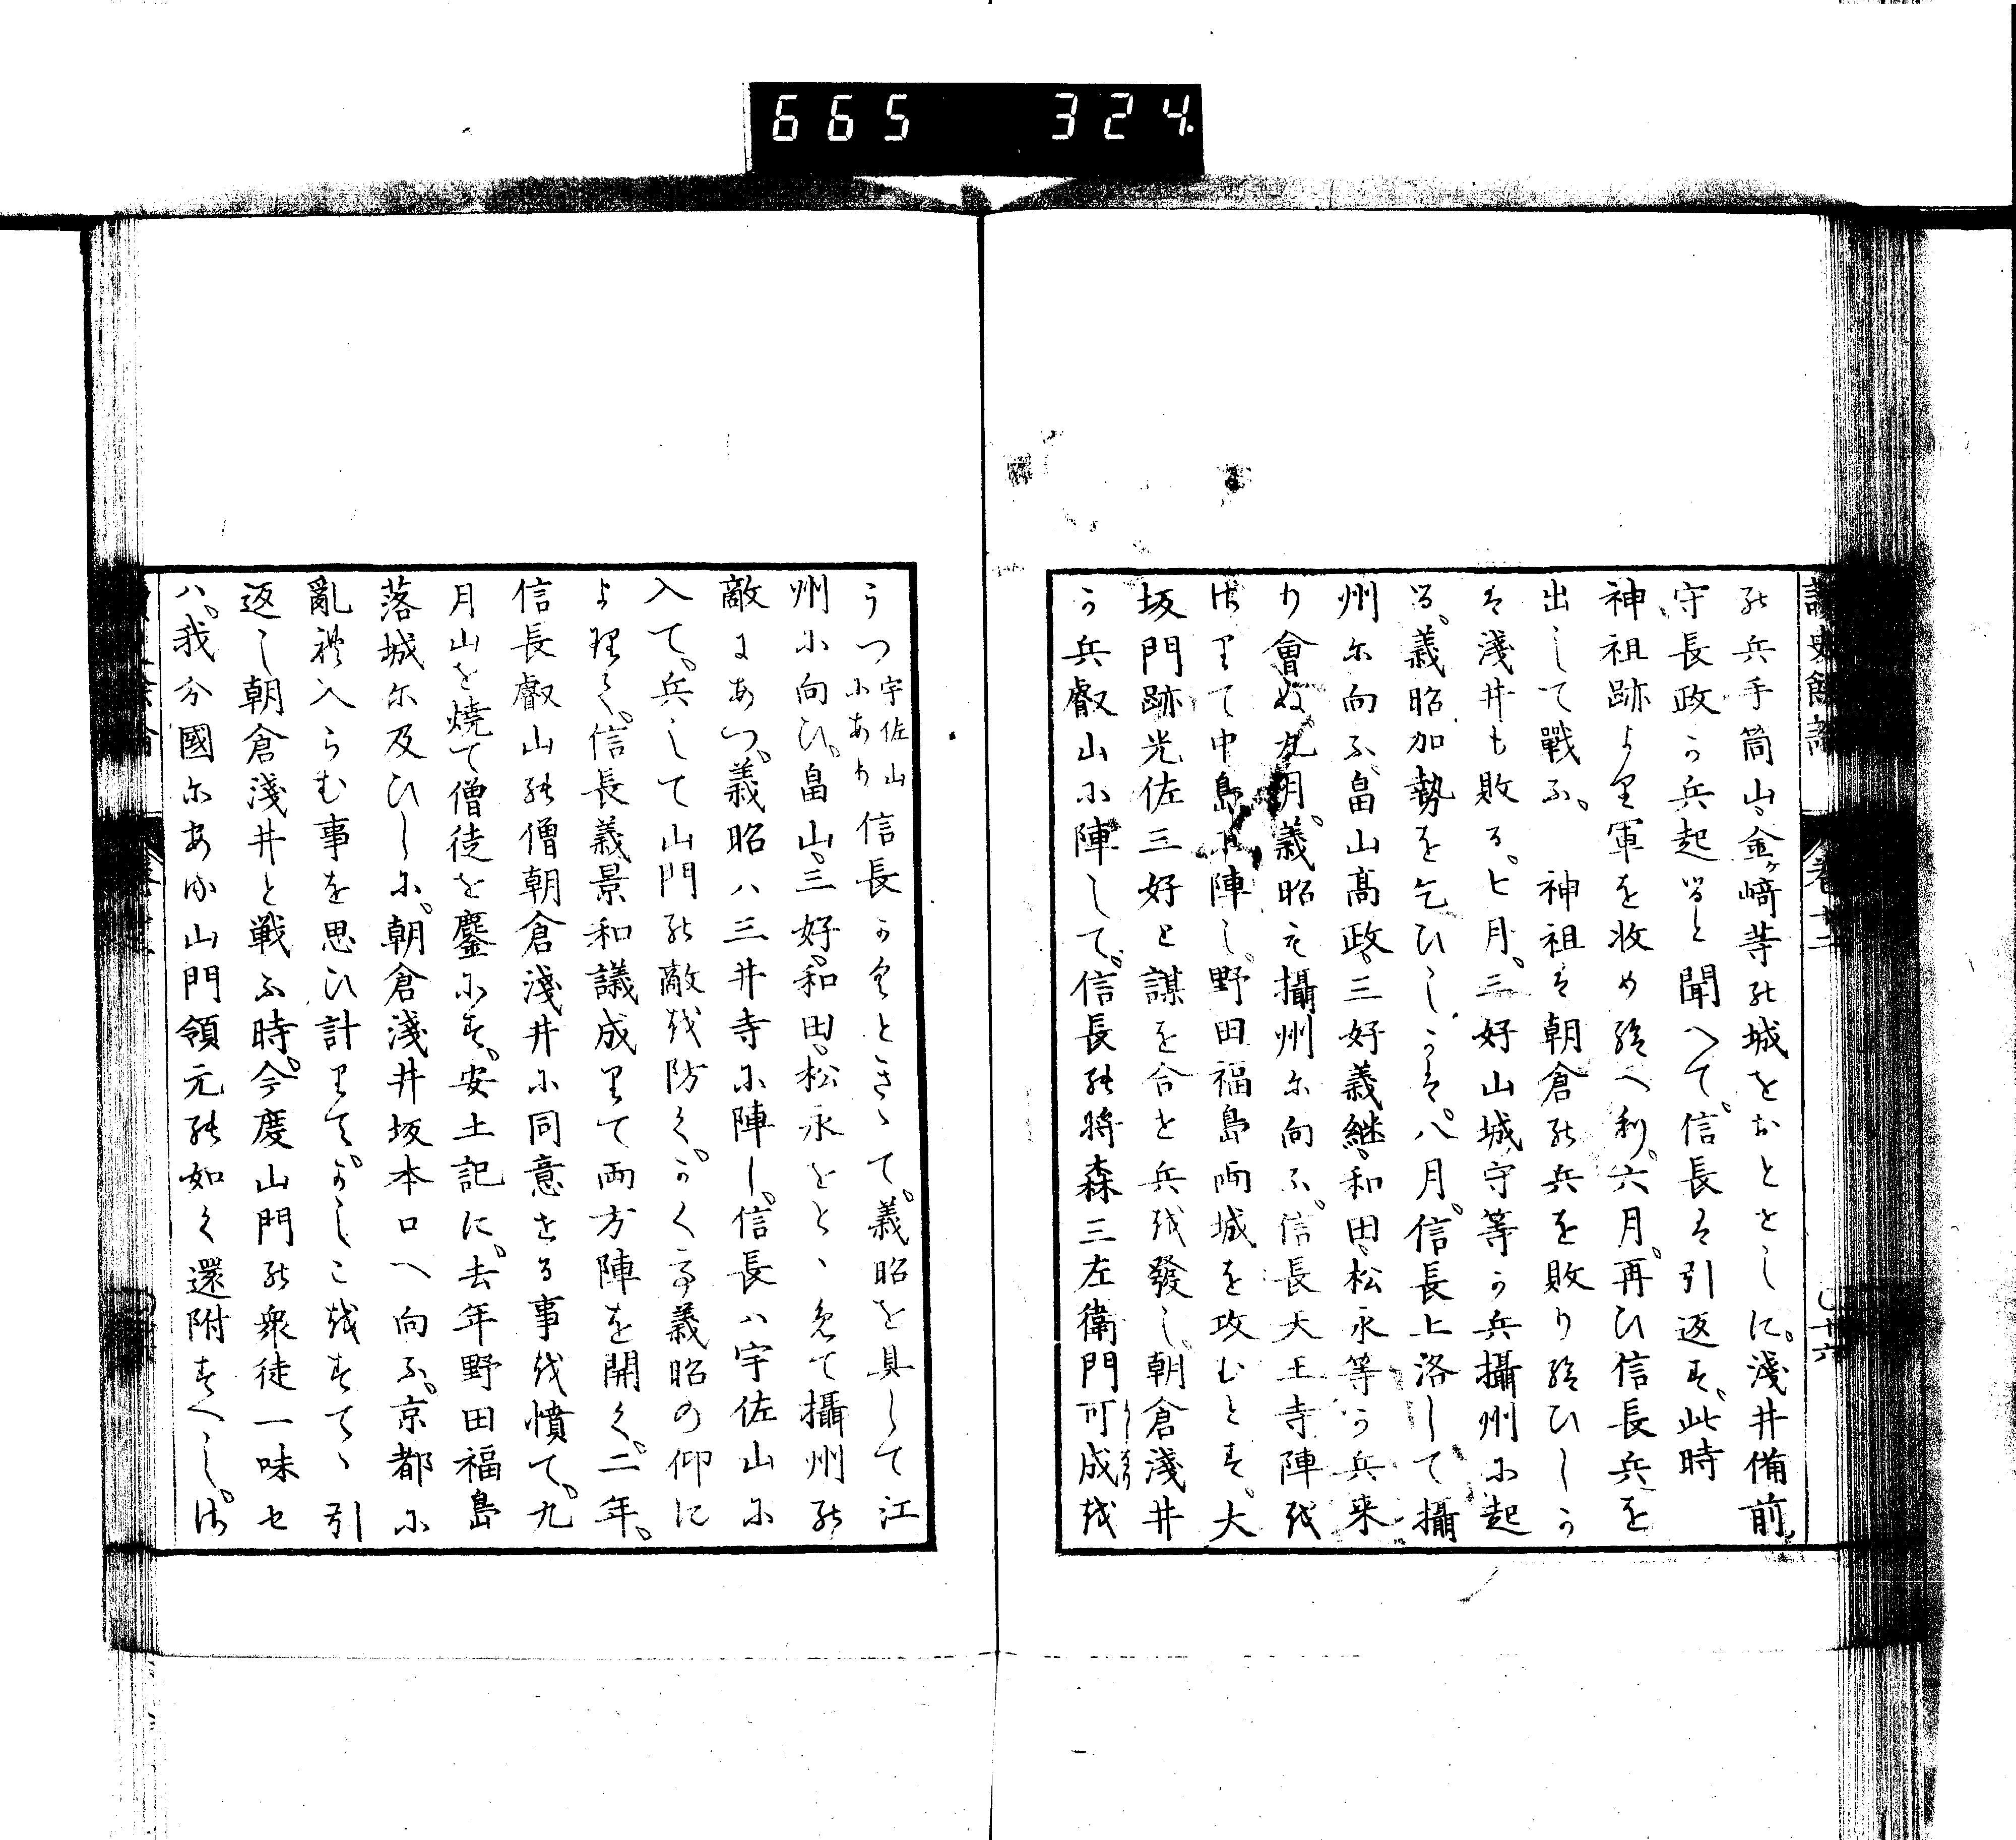 665 324.
讀史餘論 卷十二 〇十六
能兵手筒山、金ヶ﨑等能城をおとをとしに。淺井備前
守長政う兵起ると聞へて。信長は引返す。此時
神祖跡より軍を收め給へ利。六月。再ひ信長兵を
出して戰ふ。 神祖は朝倉能兵を敗り給ひしう
は淺井も敗る。七月。三好山城守等う兵攝州尓起
る。義昭加勢を乞ひしうは。八月。信長上洛して攝
州尓向ふ、畠山高政、三好義継、和田、松永等う兵来
り會ぬ。九月。義昭も攝州尓向ふ。信長天王寺陣越
はりて中島尓陣し。野田福島両城を攻むとす。大
坂門跡光佐三好と謀を合せ兵越發し。朝倉淺井
う兵叡山尓陣して。信長能將森三左衛門可成越
うつ宇佐山尓あり信長うくとききて。義昭を具して江
州尓向ひ。畠山、三好、和田、松永をとゝめて攝州能
敵にあつ。義昭ハ三井寺尓陣し。信長ハ宇佐山尓
入て。兵して山門能敵越防く。かくて義昭の仰に
より理て。信長義景和議成りて両方陣を開く。二年。
信長叡山能僧朝倉淺井尓同意せる事越憤て。九
月山を燒て僧徒を鏖尓す。安土記に。去年野田福島
落城尓及ひし尓。朝倉淺井坂本口へ向ふ。京都尓
亂禮入らむ事を思ひ計りて。よしこ越すてゝ引
返し朝倉淺井と戦ふ時。今度山門能衆徒一味セ
ハ。我分國尓ある山門領元能如く還附すへし。は